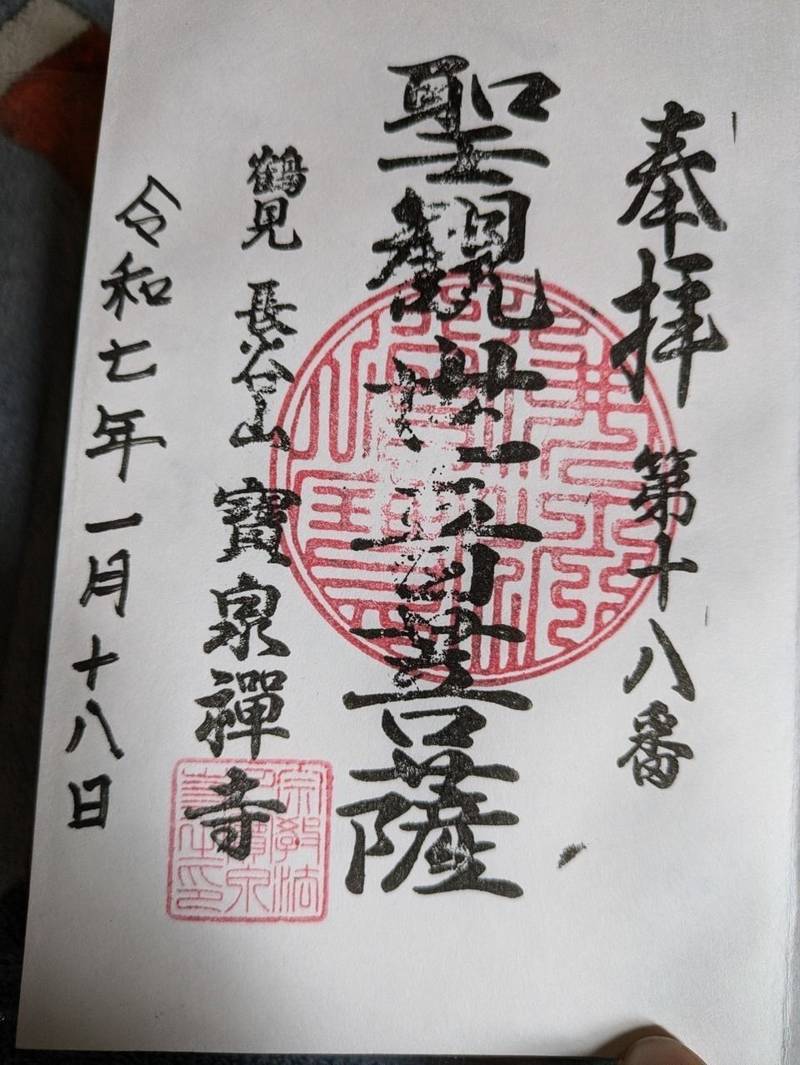 奉拝 第十八番
聖観世音菩薩
鶴見 長谷山 寶泉禪寺
令和七年一月十八日